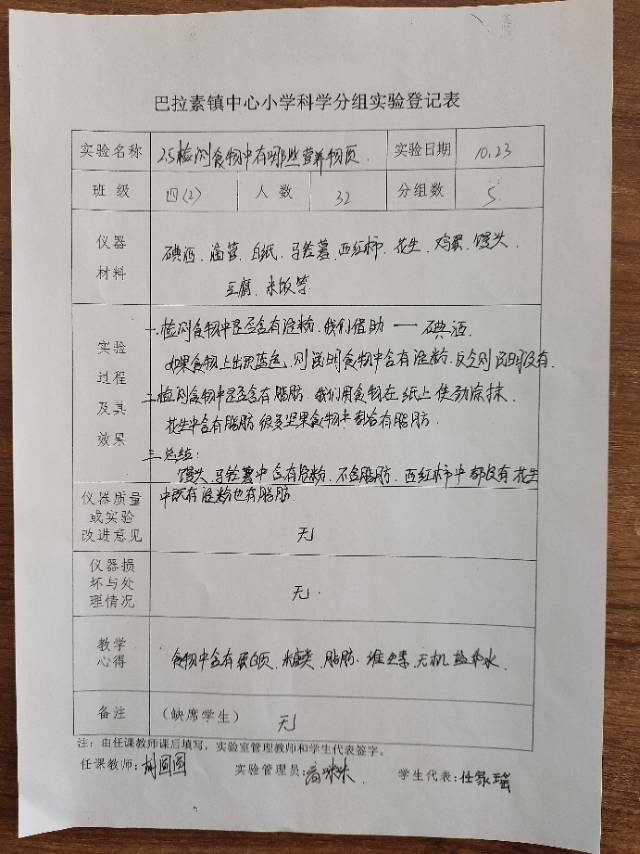 巴拉素镇中心小学科学分组实验登记表
实验名称 2.5检测食物中有哪些营养物质 实验日期 10.23
班级 四(2) 人数 32 分组数 5
仪器材料 碘酒、滴管、白纸、马铃薯、西红柿、花生、鸡蛋、馒头、
豆腐、米饭等
实验过程及其效果
一.检测食物中是否含有淀粉.我们借助——碘酒.
如果食物上出现蓝色,则说明食物中含有淀粉.反之则说明没有.
二.检测食物中是否含有脂肪 我们用食物在纸上使劲涂抹.
花生中含有脂肪 很多坚果食物中都含有脂肪.
三.总结:
馒头、马铃薯中含有淀粉.不含脂肪.西红柿中都没有 花生
中既有淀粉也有脂肪.
仪器质量或实验改进意见 无
仪器损坏与处理情况 无.
教学心得 食物中含有蛋白质、糖类、脂肪、维生素、无机盐和水.
备注 (缺席学生) 无
注:由任课教师课后填写,实验室管理教师和学生代表签字。
任课教师: 圆圆 实验管理员: 学生代表: